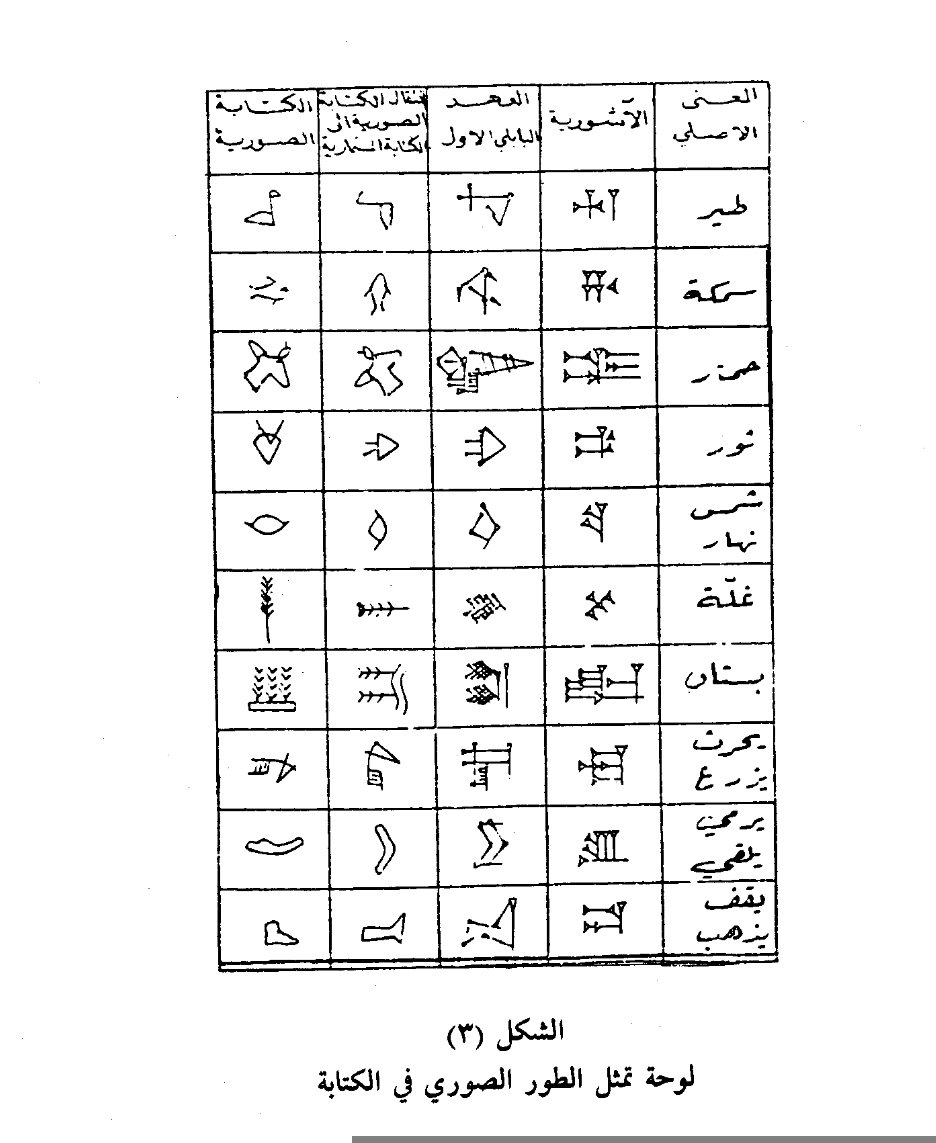 المعنى
الاصلي
الآشورية
العهد
البابلي الاول
انتقال الكتابة
الصورية الى
الكتابة المسمارية
الكتابة
الصورية
طير
سمكة
حمار
ثور
شمس
نهار
غلّة
بستان
يحرث
يزرع
يرمي
يلقي
يقف
يذهب
الشكل (٣)
لوحة تمثل الطور الصوري في الكتابة